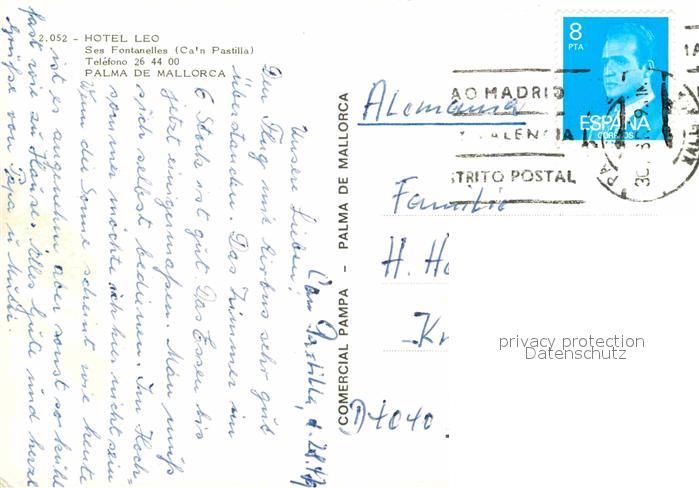 2.052 - HOTEL LEO
Ses Fontanelles (Ca'n Pastilla)
Teléfono 26 44 00
PALMA DE MALLORCA
Can Pastilla, d.
Unsere Lieben!
Den Flug mit Airbus sehr gut
überstanden. Das Zimmer im
6 Stock ist gut Das Essen bis
jetzt einigermaßen. Man muß
sich selbst bedienen. Im Hoch-
sommer möchte ich hier nicht sein
Wenn die Sonne scheint wie heute
ist es angenehm aber sonst so kühl
fast wie zu Hause. Alles Gute und herzl
Grüße von Papa u Mutti.
COMERCIAL PAMPA - PALMA DE MALLORCA
8
PTA
ESPAÑA
CORREOS
AO MADRID
VALENCIA
STRITO POSTAL
Alemania
Familie
H. Ho
Kr
D4040
privacy protection
Datenschutz